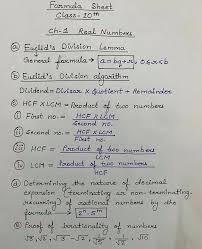 Formula Sheet
Class-10th
Ch-1 Real Numbers
(a) Euclid's Division Lemma
General formula → a = bq + r, 0 ≤ r < b
(b) Euclid's Division algorithm
Dividend = Divisor × Quotient + Remainder
(c) HCF × LCM = Product of two numbers
(i) First no. = HCF × LCM / Second no.
(ii) Second no. = HCF × LCM / First no.
(iii) HCF = Product of two numbers / LCM
(iv) LCM = Product of two number / HCF
(d) Determining the nature of decimal
expansion (terminating or non-terminating
recurring) of rational numbers by the
formula → 2ⁿ·5ᵐ
(e) Proof of irrationality of numbers